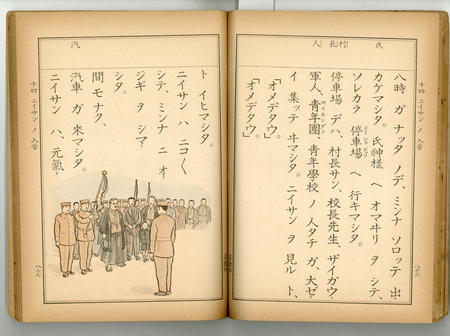 氏
村長
人
十四 ニイサン ノ 入營
八時 ガ ナッタ ノデ、ミンナ ソロッテ 出
カケマシタ。氏神樣 ヘ オマヰリ ヲ シテ、
ソレカラ 停車場 ヘ 行キマシタ。
停車場 デハ、村長サン、校長先生、ザイガウ
軍人、青年團、青年學校 ノ 人タチ ガ、大ゼ
イ 集ッテ ヰマシタ。ニイサン ヲ 見ルト、
「オメデタウ。」
「オメデタウ。」
八十六
汽
十四 ニイサン ノ 入營
ト イヒマシタ。
ニイサン ハ ニコ〱
シテ、ミンナ ニ オ
ジギ ヲ シマ
シタ。
間モナク、
汽車 ガ 來マシタ。
ニイサン ハ、元氣
八十七